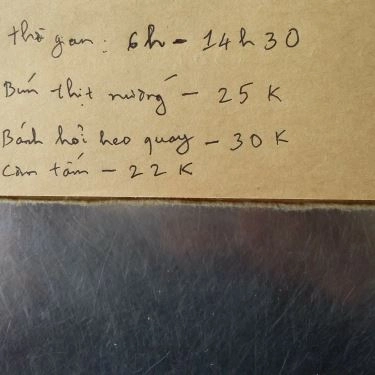 thời gian: 6h - 14h30
Bún thịt nướng - 25K
Bánh hỏi heo quay - 30K
Cơm tấm - 22K